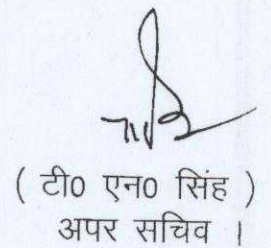 ( टी0 एन0 सिंह )
अपर सचिव ।